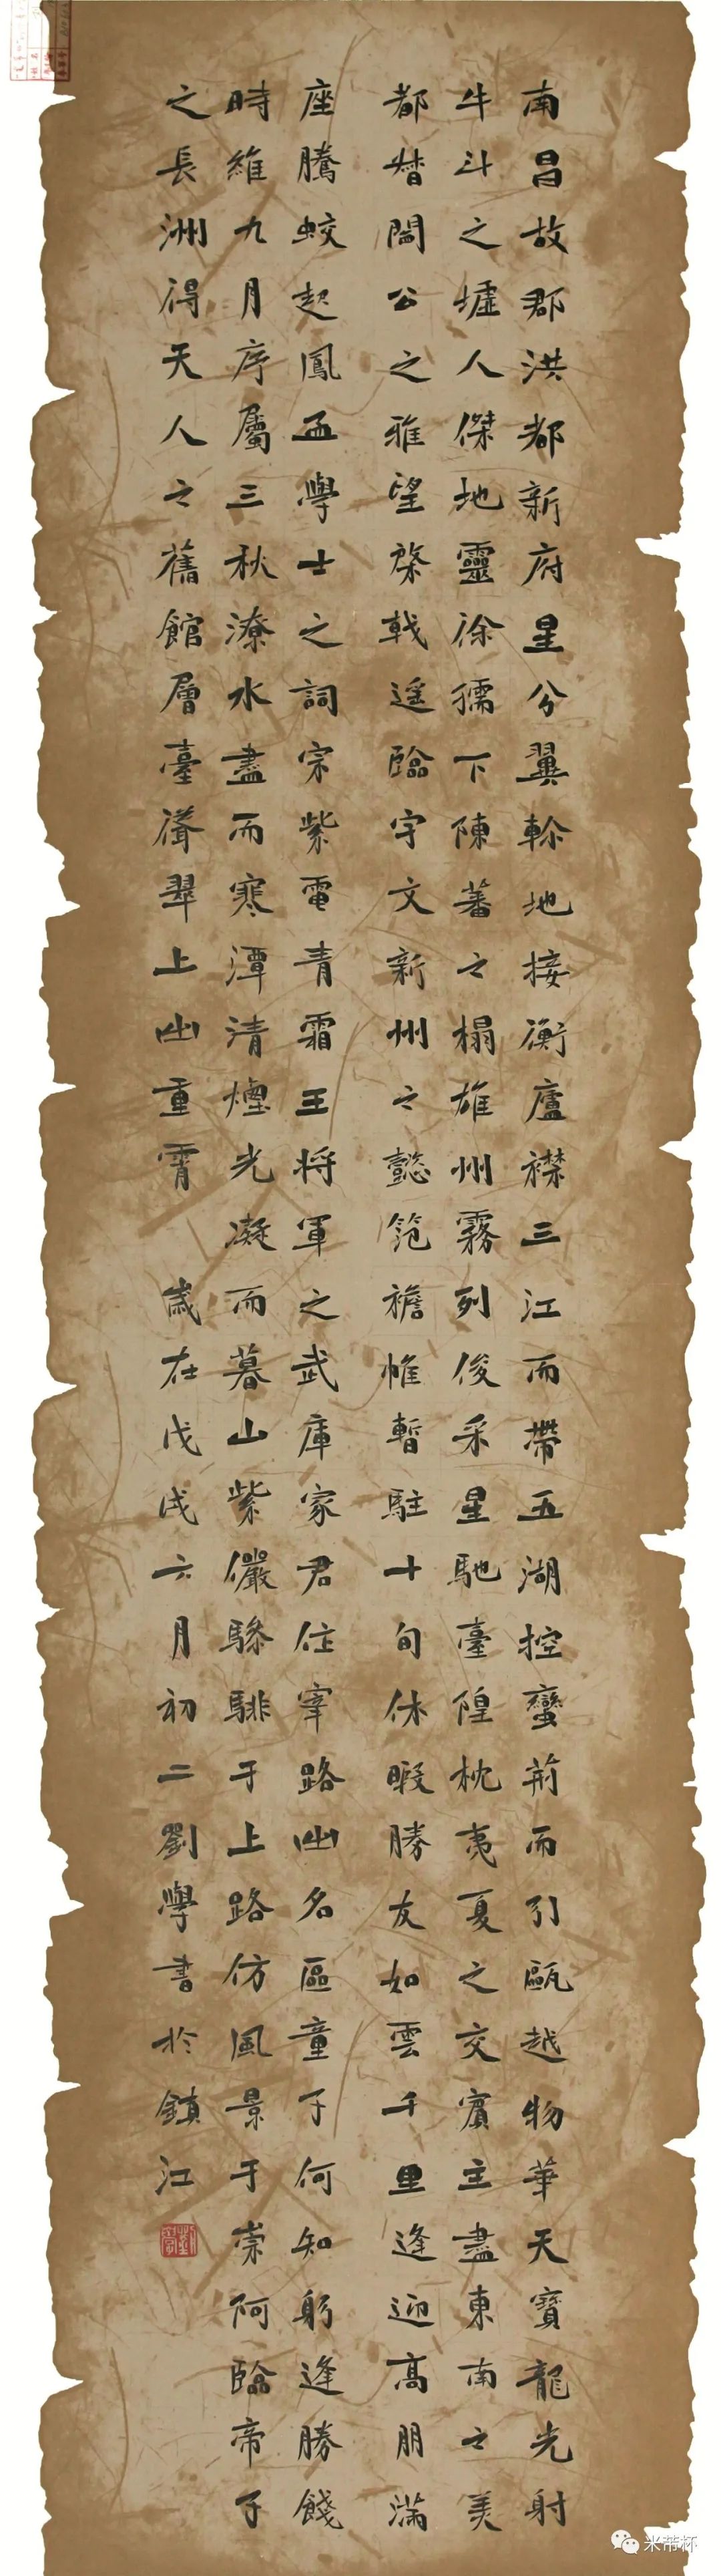 南昌故郡洪都新府星分翼軫地接衡廬襟三江而帶五湖控蠻荊而引甌越物華天寶龍光射
牛斗之墟人傑地靈徐孺下陳蕃之榻雄州霧列俊采星馳臺隍枕夷夏之交賓主盡東南之美
都督閻公之雅望棨戟遥臨宇文新州之懿笵襜帷暫駐十旬休暇勝友如雲千里逢迎高朋滿
座騰蛟起鳳孟學士之詞宗紫電青霜王将軍之武庫家君作宰路出名區童子何知躬逢勝餞
時維九月序屬三秋潦水盡而寒潭清煙光凝而暮山紫儼驂騑于上路仿風景于崇阿臨帝子
之長洲得天人之舊館層臺聳翠上出重霄 歲在戊戌六月初二劉學書於鎮江
米芾杯